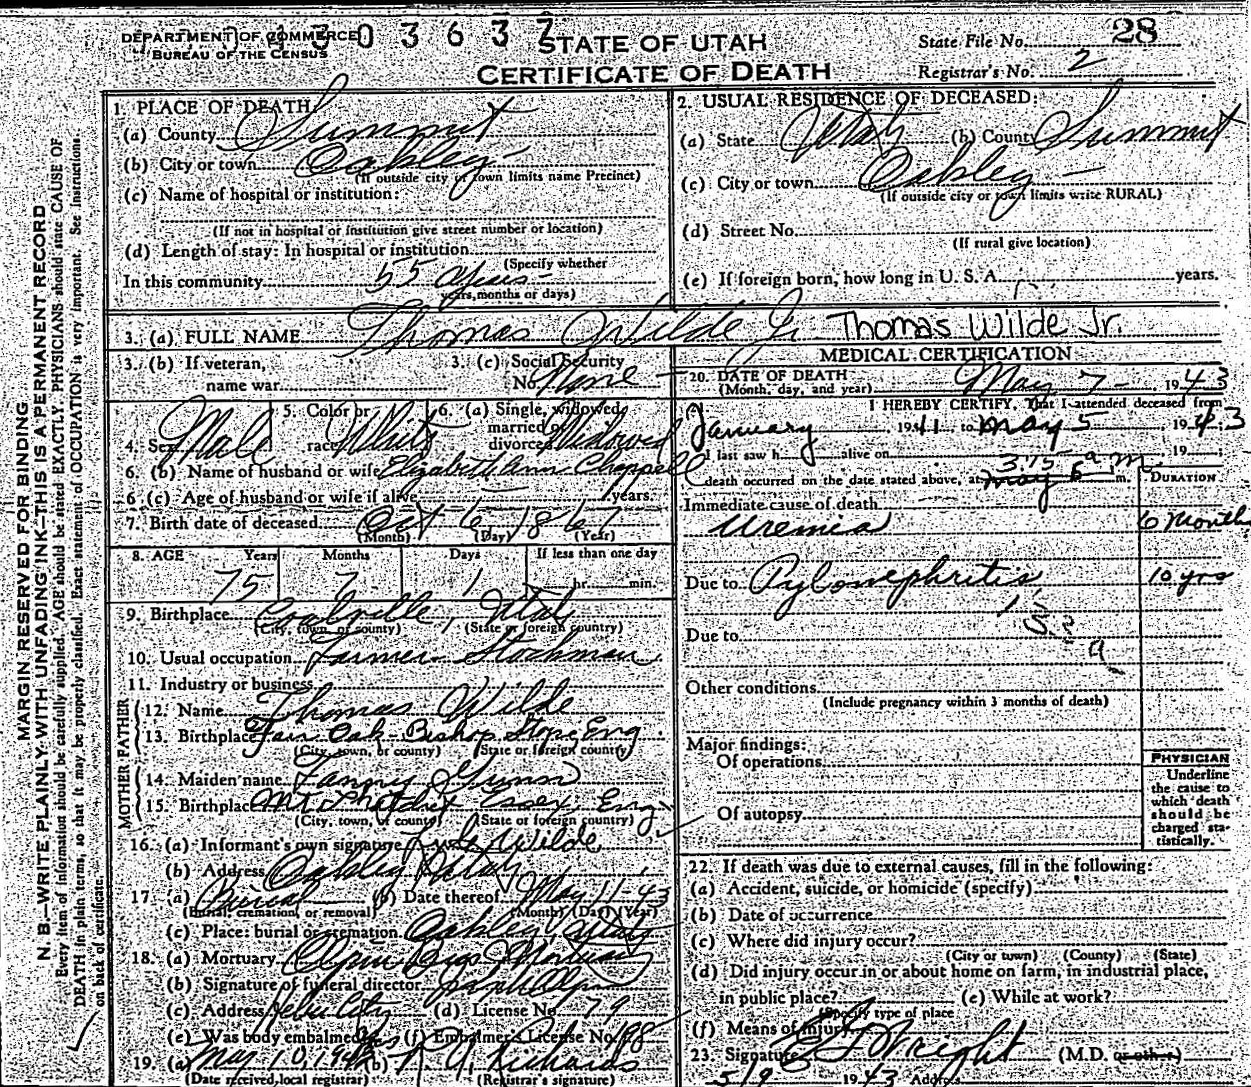 DEPARTMENT OF COMMERCE
BUREAU OF THE CENSUS
0 3 6 3 7
STATE OF UTAH
CERTIFICATE OF DEATH
State File No. 28
Registrar's No. 2
MARGIN RESERVED FOR BINDING
N. B.—WRITE PLAINLY WITH UNFADING INK—THIS IS A PERMANENT RECORD
Every item of information should be carefully supplied. AGE should be stated EXACTLY. PHYSICIANS should state CAUSE OF
DEATH in plain terms, so that it may be properly classified. Exact statement of OCCUPATION is very important. See instructions
on back of certificate
1. PLACE OF DEATH
(a) County Summit
(b) City or town Oakley
(If outside city or town limits name Precinct)
(c) Name of hospital or institution:
(If not in hospital or institution give street number or location)
(d) Length of stay: In hospital or institution
(Specify whether
In this community 55 years
years, months or days)
2. USUAL RESIDENCE OF DECEASED:
(a) State Utah (b) County Summit
(c) City or town Oakley
(If outside city or town limits write RURAL)
(d) Street No.
(If rural give location)
(e) If foreign born, how long in U. S. A. years.
3. (a) FULL NAME Thomas Wilde Jr. Thomas Wilde Jr.
3. (b) If veteran,
name war
3. (c) Social Security
No. None
4. Sex Male
5. Color or
race White
6. (a) Single, widowed
married or
divorced Widowed
6. (b) Name of husband or wife Elizabeth Ann Chappell
6. (c) Age of husband or wife if alive years.
7. Birth date of deceased Oct 6 1867
(Month) (Day) (Year)
8. AGE Years Months Days If less than one day
75 7 1 hr. min.
9. Birthplace Coalville, Utah
(City, town, or county) (State or foreign country)
10. Usual occupation Farmer - Stockman
11. Industry or business
FATHER
12. Name Thomas Wilde
13. Birthplace Fair Oak Bishop Stoke Eng.
(City, town, or county) (State or foreign country)
MOTHER
14. Maiden name Fanny Gunn
15. Birthplace Essex, Eng
(City, town, or county) (State or foreign country)
16. (a) Informant's own signature Wilde
(b) Address Oakley Utah
17. (a) Burial (b) Date thereof May 11-43
(Burial, cremation, or removal) (Month) (Day) (Year)
(c) Place: burial or cremation Oakley, Utah
18. (a) Mortuary Olpin Bros Mortuary
(b) Signature of funeral director
(c) Address Heber City (d) License No. 79
(e) Was body embalmed Yes (f) Embalmer's License No. 188
19. (a) May 10, 1943 (b) Richards
(Date received local registrar) (Registrar's signature)
MEDICAL CERTIFICATION
20. DATE OF DEATH
(Month, day, and year) May 7 - 1943
I HEREBY CERTIFY, That I attended deceased from
January, 1941, to May 5 1943
I last saw h alive on 19
3:15 a.m.
death occurred on the date stated above, at May 5 m.
DURATION
Immediate cause of death
Uremia 6 months
Due to Pylonephritis 10 yrs
Due to
Other conditions
(Include pregnancy within 3 months of death)
Major findings:
Of operations
Of autopsy
PHYSICIAN
Underline
the cause to
which death
should be
charged sta-
tistically.
22. If death was due to external causes, fill in the following:
(a) Accident, suicide, or homicide (specify)
(b) Date of occurrence
(c) Where did injury occur?
(City or town) (County) (State)
(d) Did injury occur in or about home on farm, in industrial place,
in public place? (e) While at work?
(Specify type of place
(f) Means of injury
23. Signature Wright (M.D. or other)
5/9 1943 Address